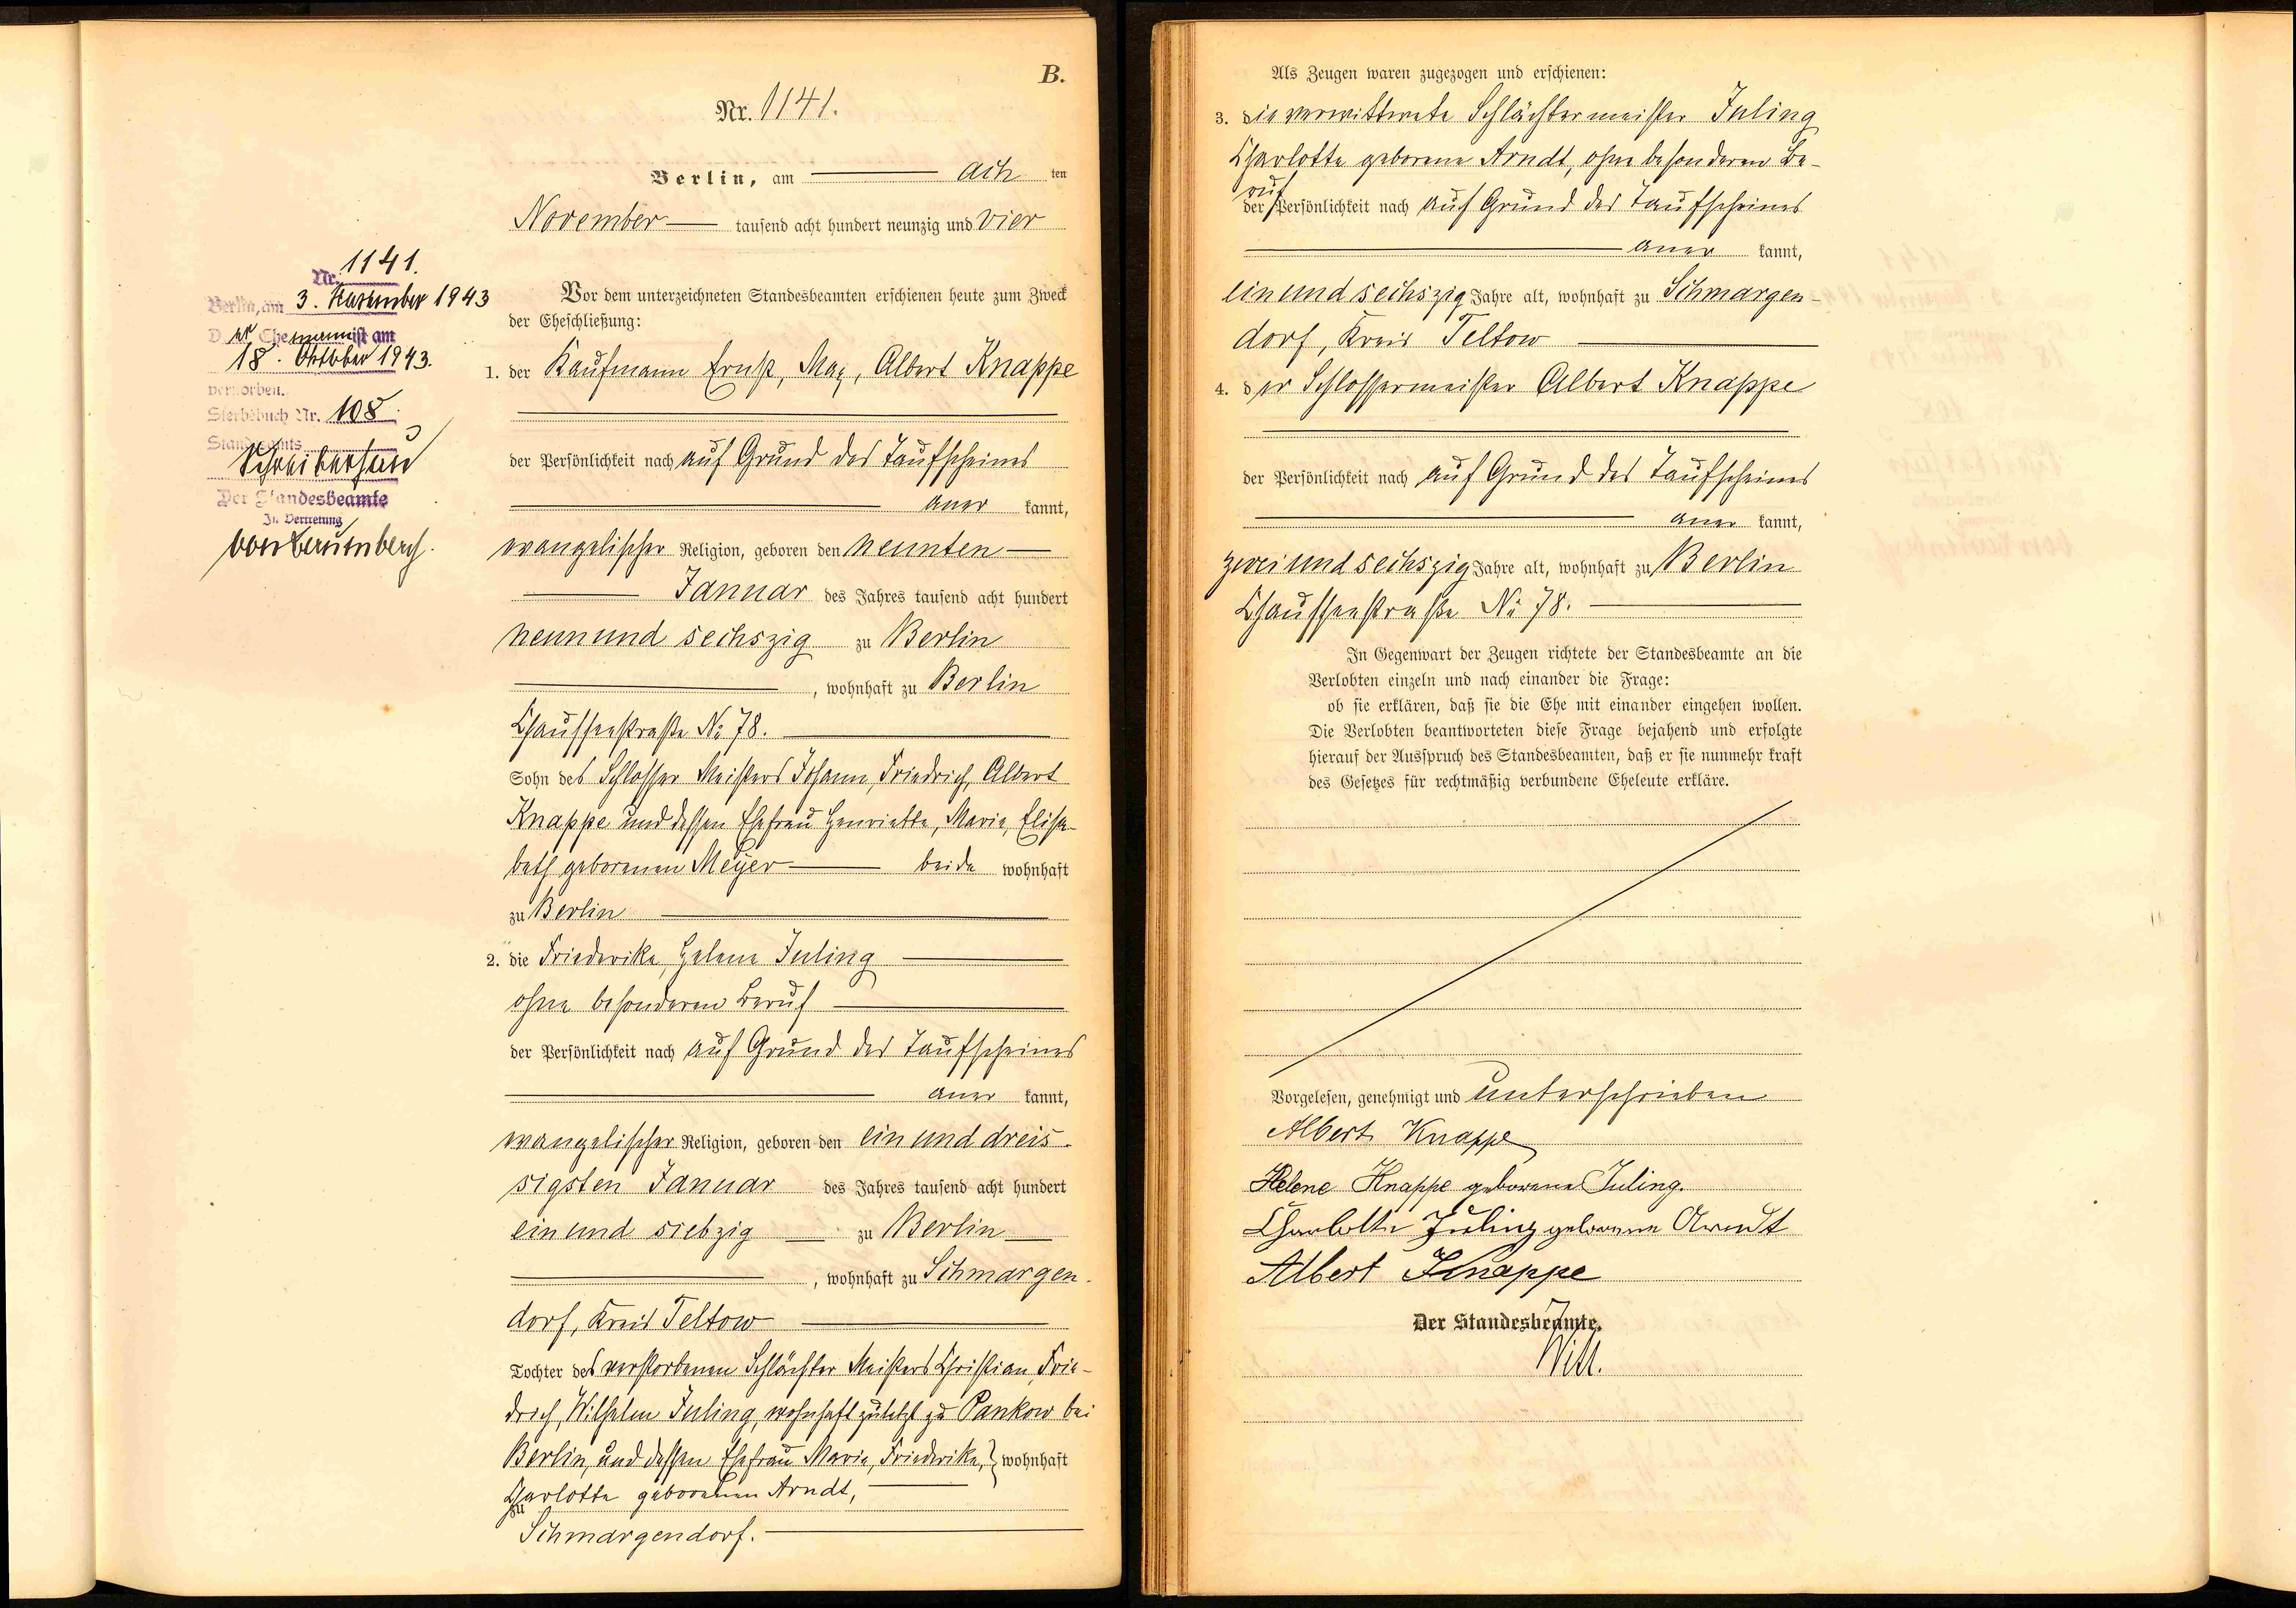 B.
Nr. 1141.
Berlin, am ach ten
November tausend acht hundert neunzig und vier
Vor dem unterzeichneten Standesbeamten erschienen heute zum Zweck
der Eheschließung:
1. der Kaufmann Ernst, Max, Albert Knappe
der Persönlichkeit nach auf Grund des Taufscheines
aner kannt,
evangelischer Religion, geboren den neunten
Januar des Jahres tausend acht hundert
neun und sechszig zu Berlin
, wohnhaft zu Berlin
Chausseestraße No 78.
Sohn des Schlosser Meisters Johann, Friedrich, Albert
Knappe und dessen Ehefrau Henriette, Marie, Elisa-
beth geborenen Meyer beide wohnhaft
zu Berlin
2. die Friederike, Helene Juling
ohne besonderen Beruf
der Persönlichkeit nach auf Grund des Taufscheines
aner kannt,
evangelischer Religion, geboren den ein und dreis-
sigsten Januar des Jahres tausend acht hundert
ein und siebzig zu Berlin
, wohnhaft zu Schmargen-
dorf, Kreis Teltow
Tochter des verstorbenen Schlächter Meisters Christian, Frie-
drich, Wilhelm Juling, wohnhaft zuletzt zu Pankow bei
Berlin, und dessen Ehefrau Marie, Friederike, } wohnhaft
Charlotte geborenen Arndt,
zu
Schmargendorf.
Nr. 1141.
Berlin, am 3. November 1943
D er Ehemann ist am
18. Oktober 1943.
verstorben.
Sterbebuch Nr. 108
Standesamts
Schreiberhau
Der Standesbeamte
In Vertretung
Als Zeugen waren zugezogen und erschienen:
3. die verwittwete Schlächtermeister Juling
Charlotte geborene Arndt, ohne besonderen Be-
ruf
der Persönlichkeit nach auf Grund des Taufscheines
aner kannt,
ein und sechszig Jahre alt, wohnhaft zu Schmargen-
dorf, Kreis Teltow
4. der Schlossermeister Albert Knappe
der Persönlichkeit nach auf Grund des Taufscheines
aner kannt,
zwei und sechszig Jahre alt, wohnhaft zu Berlin
Chausseestraße No 78.
In Gegenwart der Zeugen richtete der Standesbeamte an die
Verlobten einzeln und nach einander die Frage:
ob sie erklären, daß sie die Ehe mit einander eingehen wollen.
Die Verlobten beantworteten diese Frage bejahend und erfolgte
hierauf der Ausspruch des Standesbeamten, daß er sie nunmehr kraft
des Gesetzes für rechtmäßig verbundene Eheleute erkläre.
Vorgelesen, genehmigt und unterschrieben
Albert Knappe
Helene Knappe geborene Juling.
Charlotte Juling geborene Arndt
Albert Knappe
Der Standesbeamte.